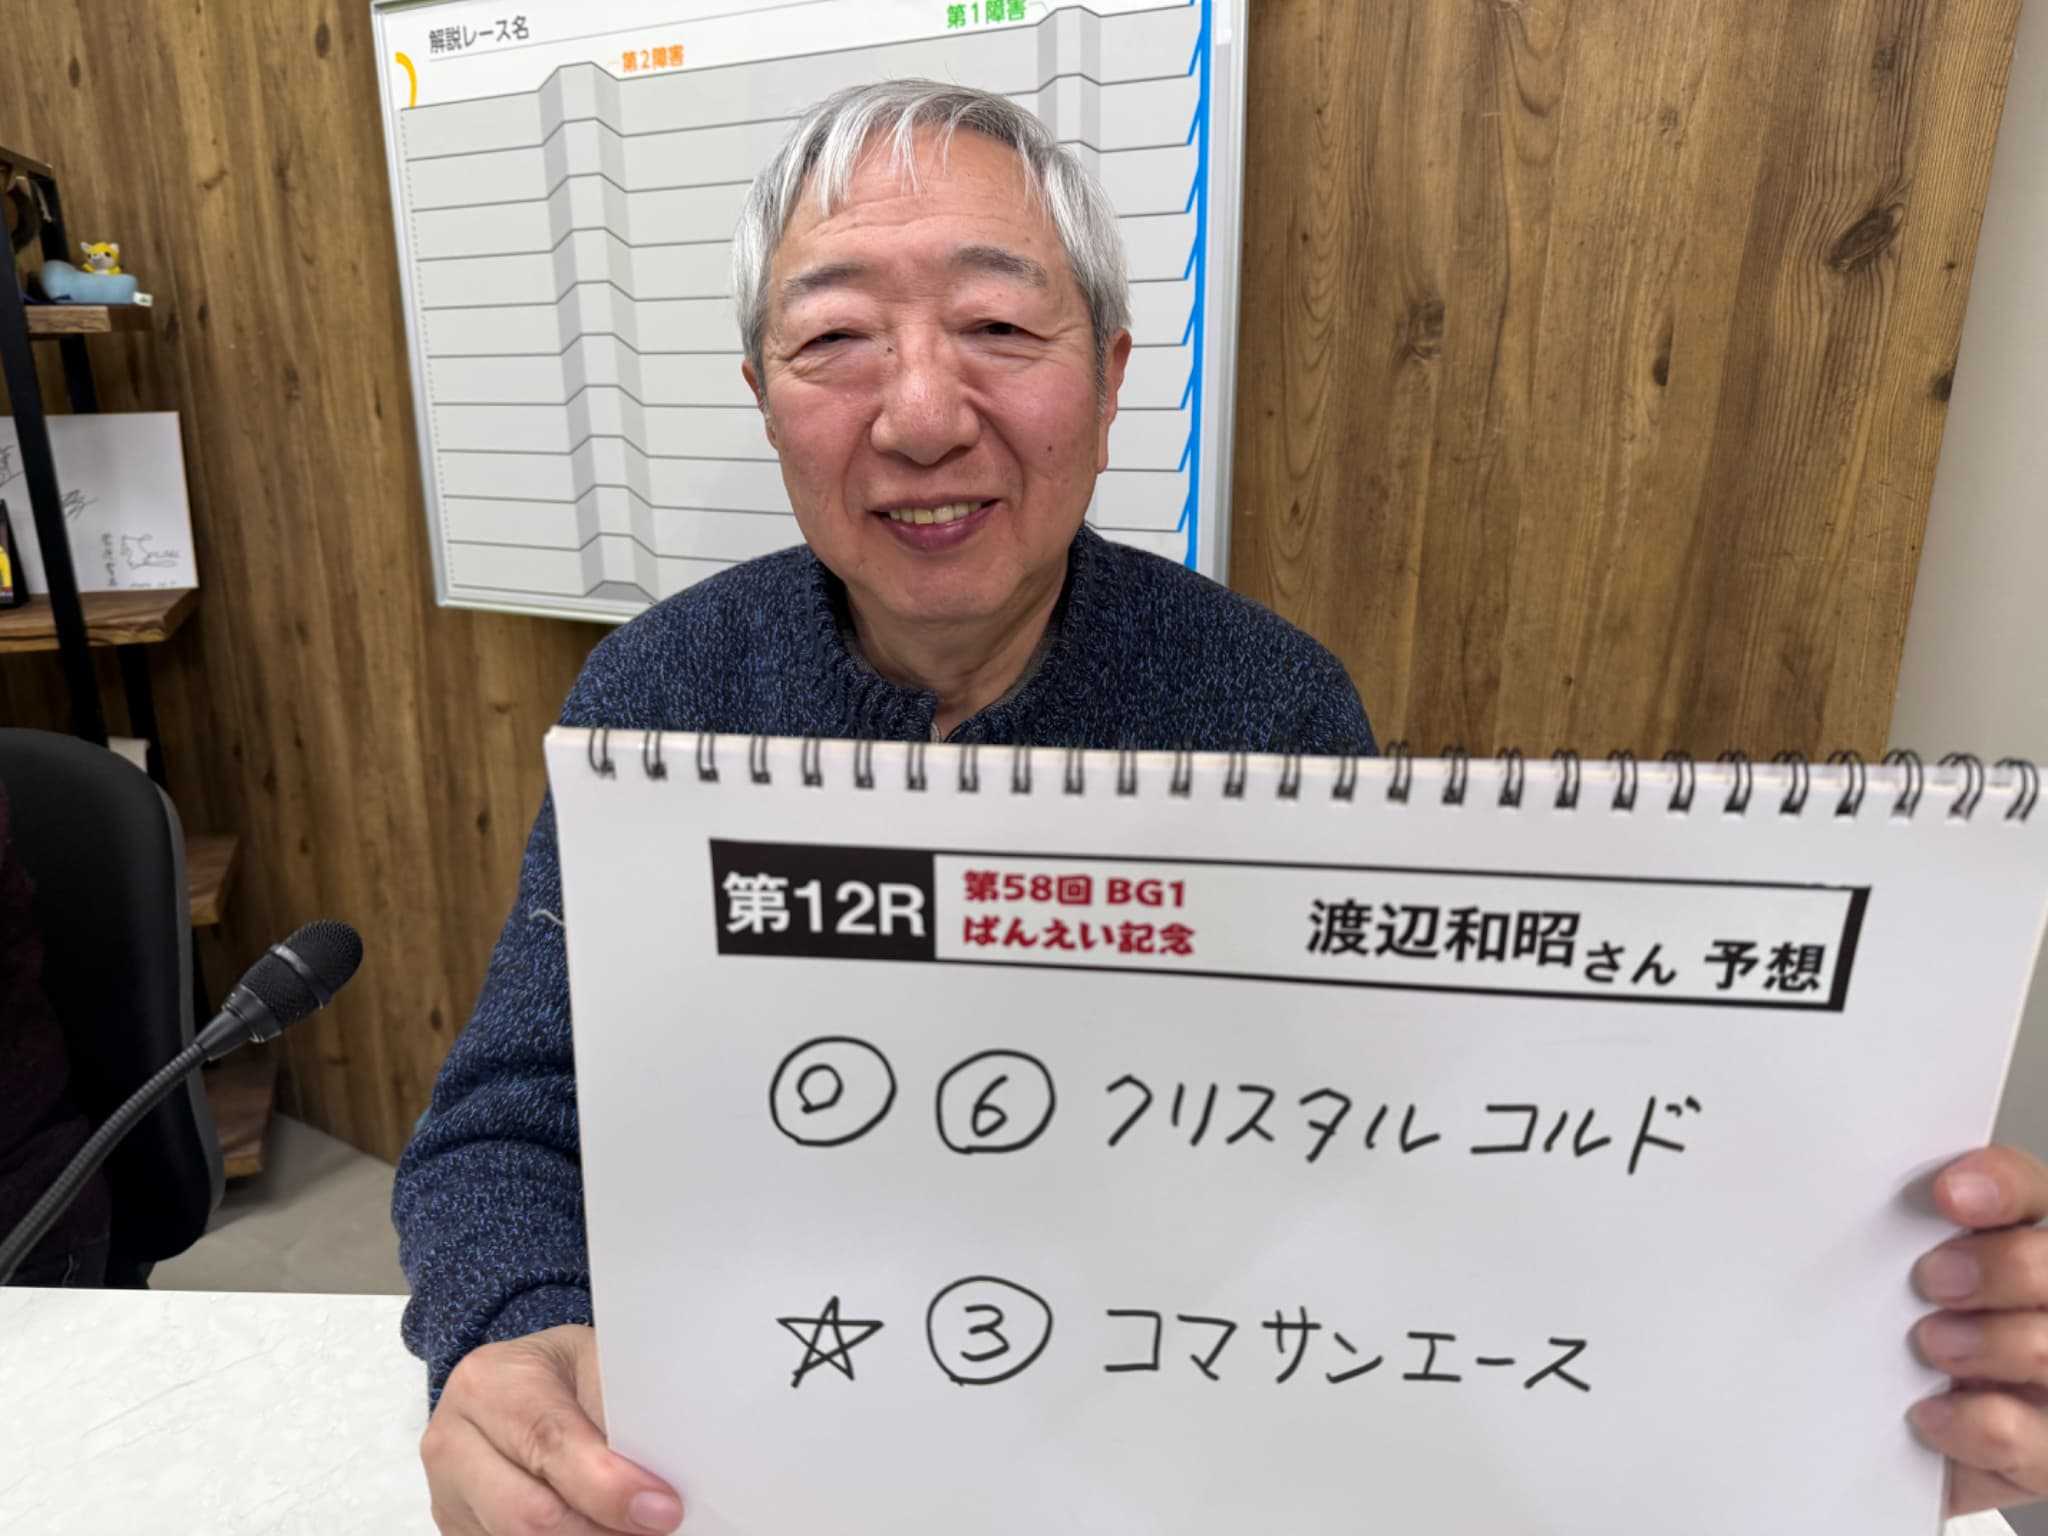 解説レース名
第2障害
第1障害
第12R
第58回 BG1
ばんえい記念
渡辺和昭さん 予想
◎ ⑥ クリスタルコルド
☆ ③ コマサンエース